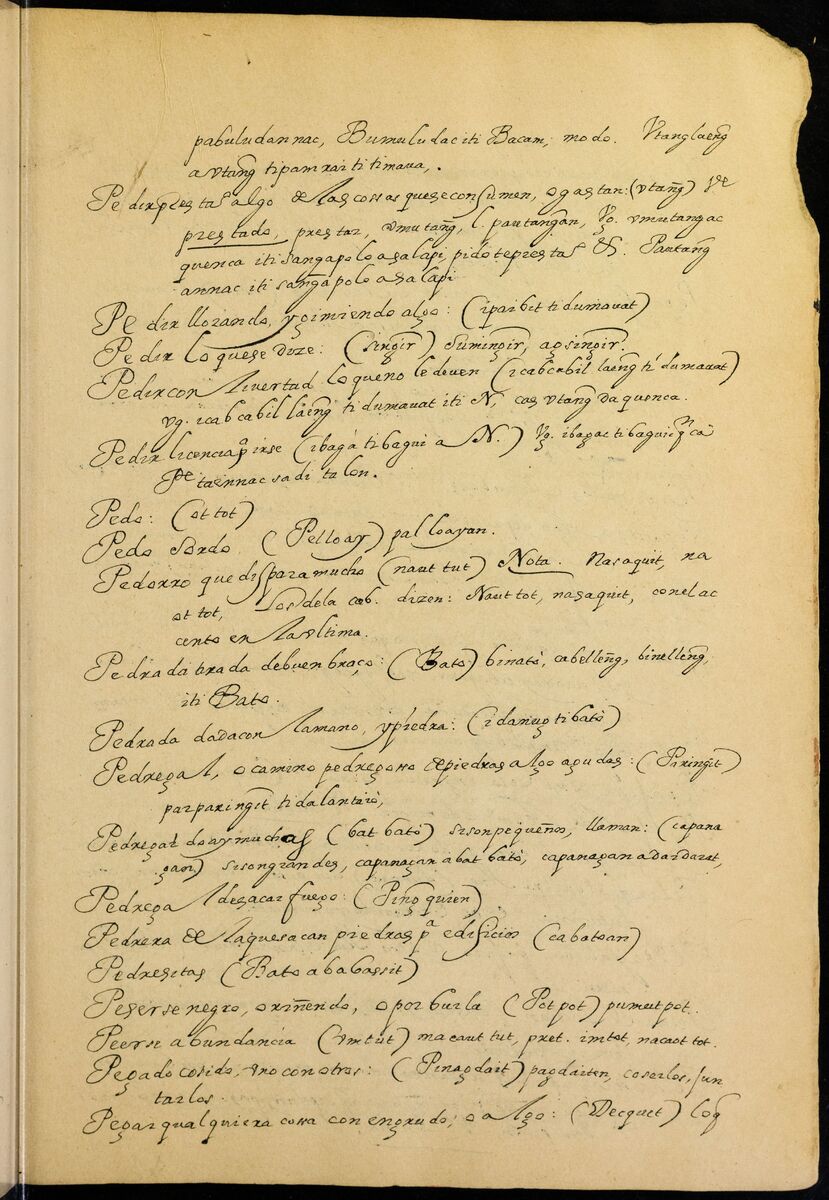 pabuludannac, Bumuludac iti Bacam, modo. Vtang laeng̃
a vtang̃ tipamrai ti timava,.
Pedir prestado algo de las cossas que se consumen, o gastan: (vtang̃) de
prestado, prestar, vmutang̃, l. pautangan, Vg. vmutangac
quenca iti sangapolo a salapi, pido te prestas &. Pautang̃
annac iti sang̃apolo a salapi
Pedir llorando, y gimiendo algo: (ipaibit ti dumavat)
Pedir lo que se dize: (sing̃ir) suming̃ir, ag sing̃ir.
Pedir con livertad lo que no le deven (icabcabil laeng̃ ti dumavat)
vg. icabcabil laeng̃ ti dumavat iti N, cas vtang̃ da quenca.
Pedir licencia pª irse (ibagà ti bagui a N.) Vg. ibagac ti baguic
taennac sadi talon.
Pedo: (ot tot)
Pedo sordo (Pelloay) palloayan.
Pedorro que dispara mucho (naut tut) Nota. Nasaquit, na
ot tot, los dela cab. dizen: Naut tot, nasaquit, con el ac
cento en la vltima.
Pedrada tirada de buen braço: (Bato) binatò, cabelleng̃, binelleng̃,
iti Bato.
Pedrada dada con la mano, y piedra: (i danug ti batò)
Pedregal, o camino pedregoso de piedras algo agudas: (Piring̃it)
parparing̃it ti dalan tarò,
Pedregal do ay muchas (bat batò) si son pequeños, llaman: (capana
gan) si son grandes, capanagan a bat batò, capanagan a dardarat,
Pedregal de sacar fuego: (Ping̃ quien)
Pedrera de la que sacan piedras pª edificios (cabatoan)
Pedresitas (Bato a babassit)
Peerse negro, o riñendo, o por burla (Pot pot) pumut pot.
Peerse abundancia (vm tut) macaut tut, pret. imtot, nacaot tot.
Pegado cosido, vno con otros: (Pinagdait) pagdaiten, coserlos, jun
tarlos.
Pegar qualquiera cossa con engrudo, o algo: (Decquet) loq̃